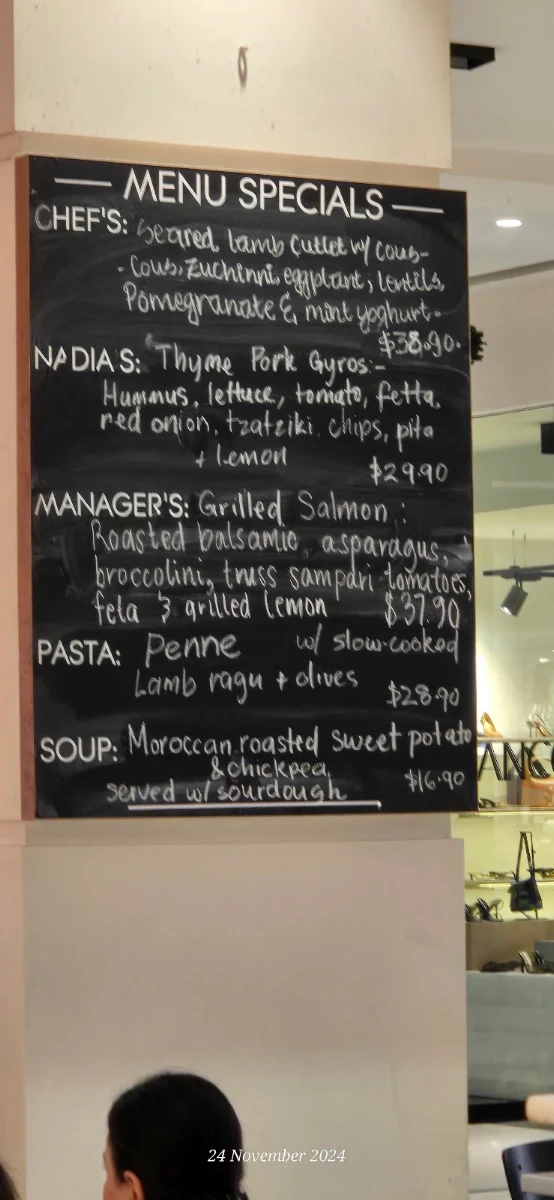 MENU SPECIALS
CHEF'S: Seared lamb cutlet w/ cous-
-cous, zuchinni, eggplant, lentils,
Pomegranate & mint yoghurt.
$38.90.
NADIA'S: Thyme Pork Gyros:-
Hummus, lettuce, tomato, fetta,
red onion, tzatziki, chips, pita
+ lemon
$29.90
MANAGER'S: Grilled Salmon:
Roasted balsamic asparagus,
broccolini, truss sampari tomatoes,
feta & grilled lemon $37.90
PASTA: Penne w/ slow-cooked
Lamb ragu + olives
$28.90
SOUP: Moroccan roasted sweet potato
& chickpea
$16.90
served w/ sourdough
24 November 2024